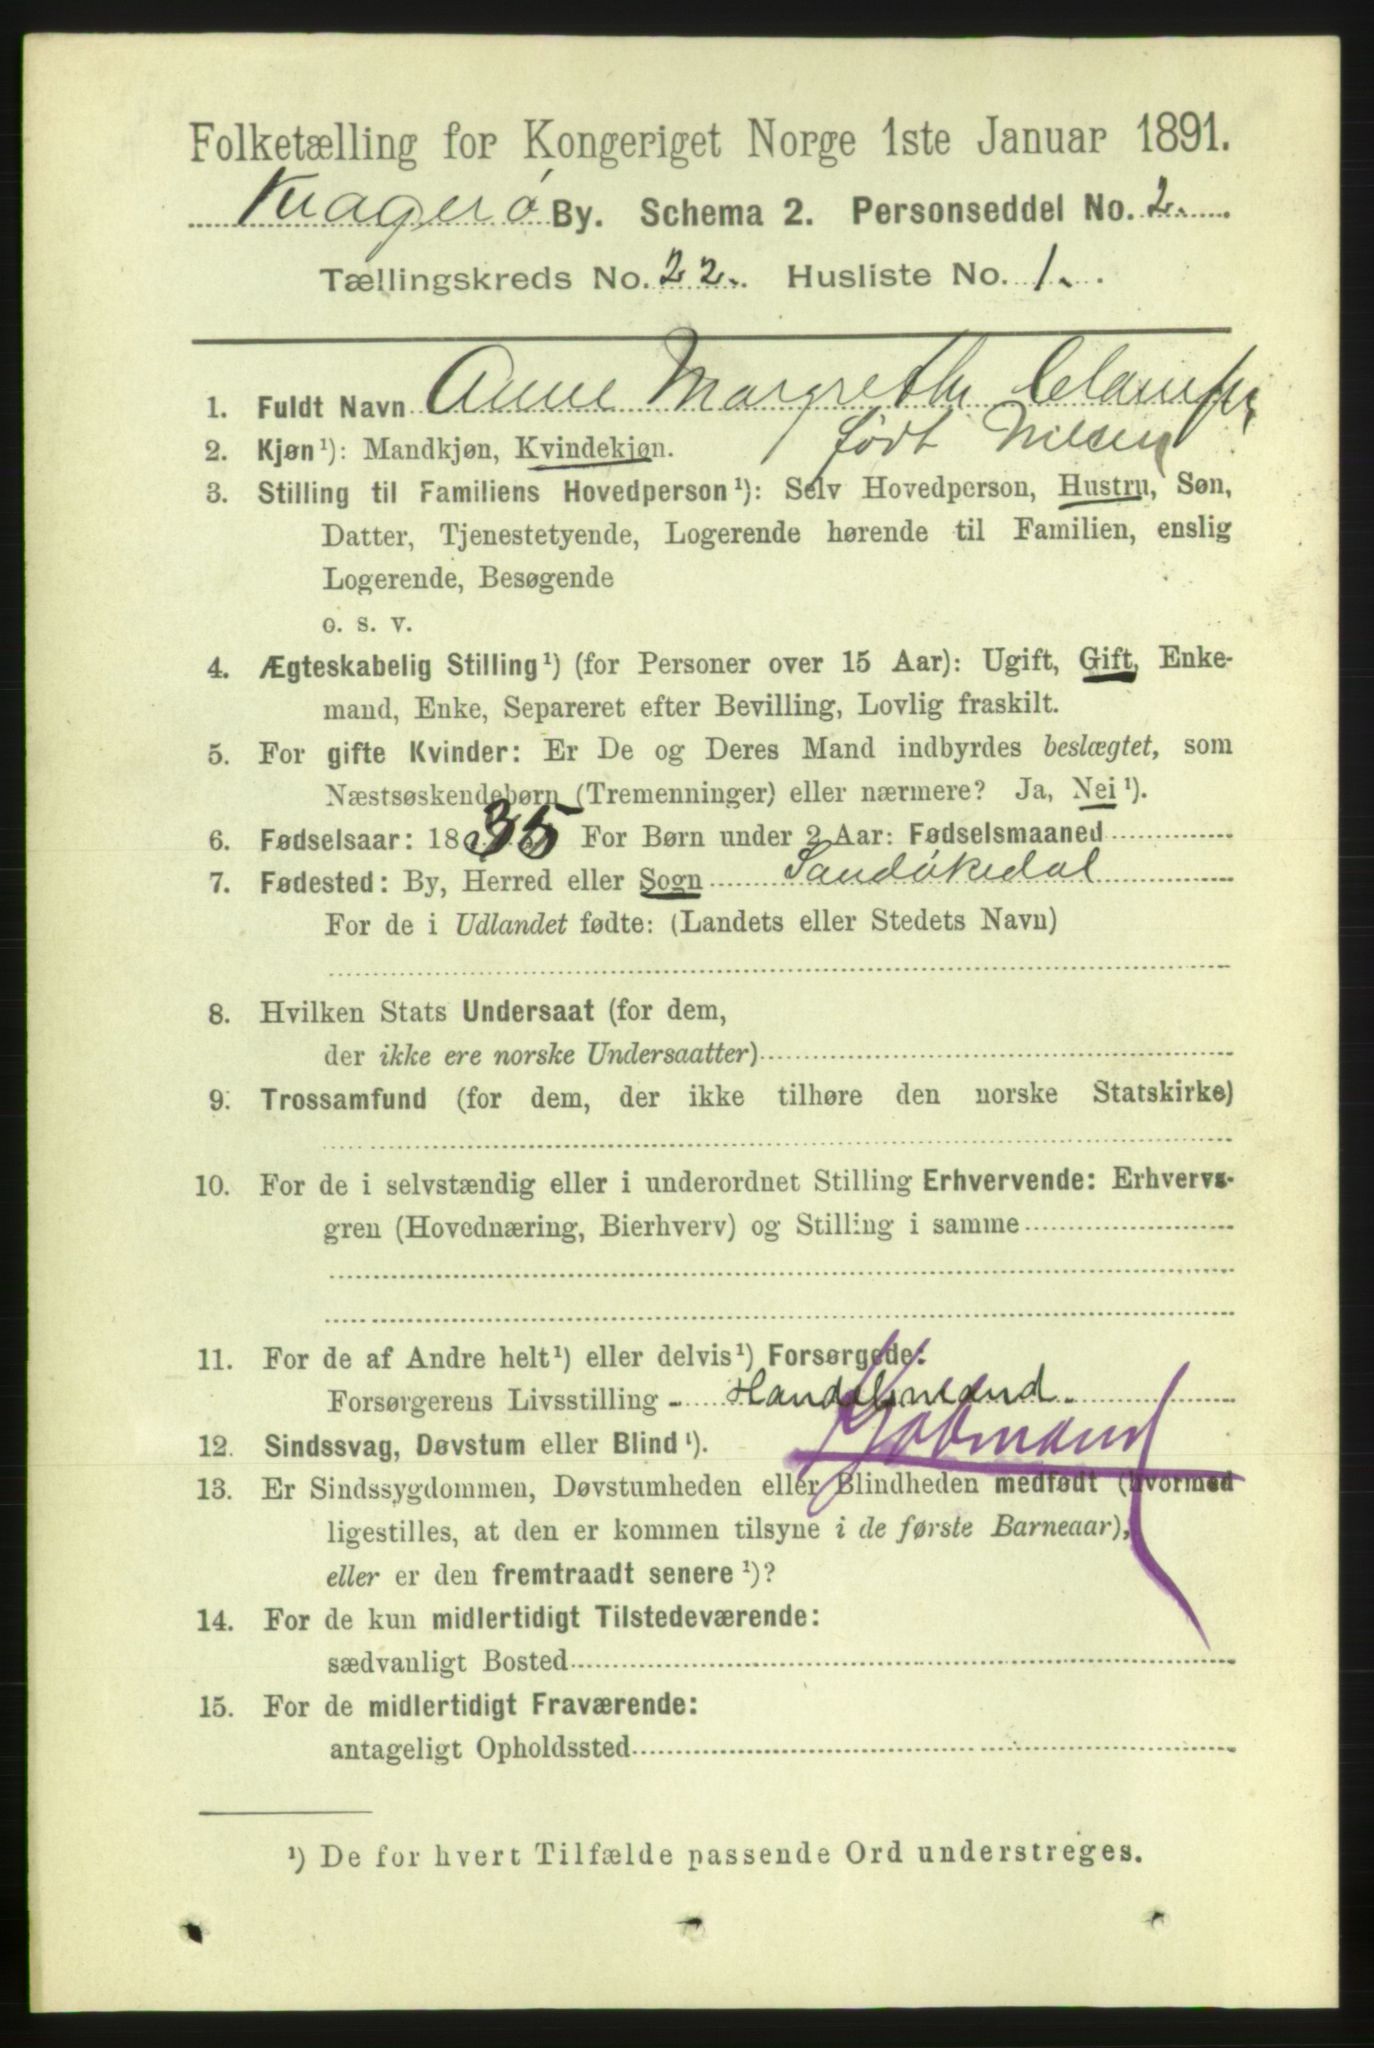 Folketælling for Kongeriget Norge 1ste Januar 1891.
Kragerø By. Schema 2. Personseddel No. 2.
Tællingskreds No. 22. Husliste No. 1.
1. Fuldt Navn Anne Margrethe
født Nilsen
2. Kjøn¹): Mandkjøn, Kvindekjøn.
3. Stilling til Familiens Hovedperson¹): Selv Hovedperson, Hustru, Søn,
Datter, Tjenestetyende, Logerende hørende til Familien, enslig
Logerende, Besøgende
o. s. v.
4. Ægteskabelig Stilling¹) (for Personer over 15 Aar): Ugift, Gift, Enke-
mand, Enke, Separeret efter Bevilling, Lovlig fraskilt.
5. For gifte Kvinder: Er De og Deres Mand indbyrdes beslægtet, som
Næstsøskendebørn (Tremenninger) eller nærmere? Ja, Nei¹).
6. Fødselsaar: 1835 For Børn under 2 Aar: Fødselsmaaned
7. Fødested: By, Herred eller Sogn Sandøkedal
For de i Udlandet fødte: (Landets eller Stedets Navn)
8. Hvilken Stats Undersaat (for dem,
der ikke ere norske Undersaatter)
9. Trossamfund (for dem, der ikke tilhøre den norske Statskirke)
10. For de i selvstændig eller i underordnet Stilling Erhvervende: Erhvervs-
gren (Hovednæring, Bierhverv) og Stilling i samme
11. For de af Andre helt¹) eller delvis¹) Forsørgede:
Forsørgerens Livsstilling - Handelsmand.
Kjøbmand
12. Sindssvag, Døvstum eller Blind¹).
13. Er Sindssygdommen, Døvstumheden eller Blindheden medfødt (hvormed
ligestilles, at den er kommen tilsyne i de første Barneaar),
eller er den fremtraadt senere¹)?
14. For de kun midlertidigt Tilstedeværende:
sædvanligt Bosted
15. For de midlertidigt Fraværende:
antageligt Opholdssted
¹) De for hvert Tilfælde passende Ord understreges.